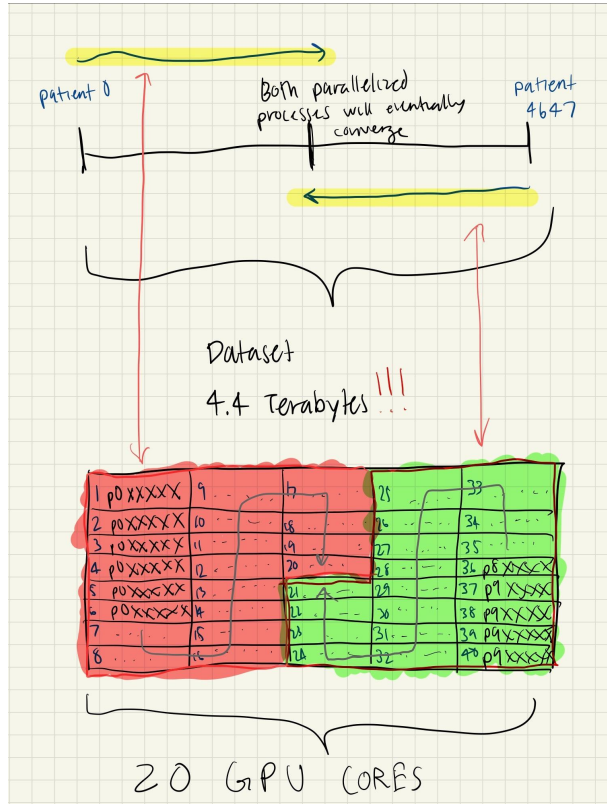 patient 0
Both parallelized
processes will eventually
converge
patient
4647
Dataset
4.4 Terabytes !!!
1 p0XXXXX 9 17 25 33
2 p0XXXXX 10 18 26 34
3 p0XXXXX 11 19 27 35
4 p0XXXXX 12 20 28 36 p8XXXXX
5 p0XXXXX 13 21 29 37 p9XXXX
6 p0XXXXX 14 22 30 38 p9XXXX
7 15 23 31 39 p9XXXX
8 16 24 32 40 p9XXXX
20 GPU CORES